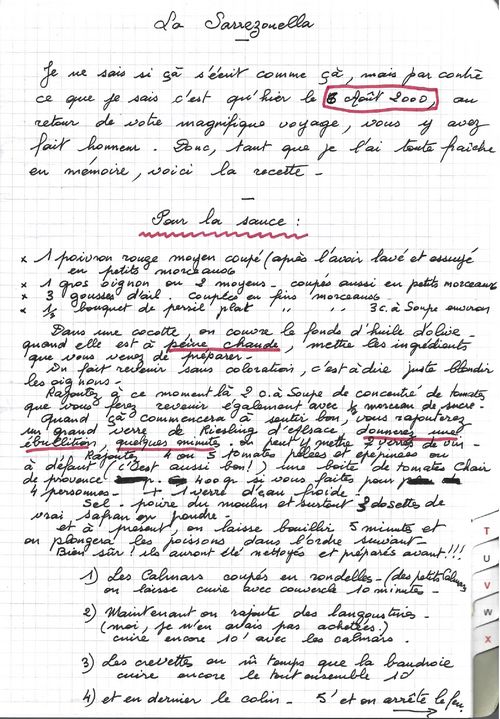 La Sarrezouella
Je ne sais si çà s'écrit comme çà, mais par contre
ce que je sais c'est qu'hier le 6 Août 2000, au
retour de votre magnifique voyage, vous y avez
fait honneur. Donc, tant que je l'ai toute fraîche
en mémoire, voici la recette -
Pour la sauce :
x 1 poivron rouge moyen coupé (après l'avoir lavé et essuyé
en petits morceaux
x 1 gros oignon ou 2 moyens - coupés aussi en petits morceaux
x 3 gousses d'ail - coupées en fins morceaux
x 1/2 bouquet de persil plat " " " 3 c. à Soupe environ
Dans une cocotte, on couvre le fonds d'huile d'olive -
quand elle est à peine chaude, mettre les ingrédients
que vous venez de préparer -
On fait revenir sans coloration, c'est à dire juste blondir
les oignons -
Rajoutez à ce moment là 2 c. à Soupe de concentré de tomates
que vous ferez revenir également avec 1/2 morceau de sucre -
Quand çà commencera à sentir bon, vous rajouterez
un grand verre de Riesling d'Alsace, donnerez une
ébullition, quelques minutes - on peut y mettre 2 verres de vin -
Rajoutez 4 ou 5 tomates pelées et épépinées ou
à défaut (c'est aussi bon !) une boîte de tomates Chair
de provence 400 gr. si vous faites pour
4 personnes - + 1 verre d'eau froide -
Sel - poivre du moulin et surtout 3 dosettes de
vrai safran en poudre -
et à présent, on laisse bouillir 5 minutes et
on plongera les poissons dans l'ordre suivant -
Bien sûr ! ils auront été nettoyés et préparés avant !!!
1) Les Calmars coupés en rondelles - (des petits Calmars
on laisse cuire avec couvercle 10 minutes -
2) Maintenant on rajoute des langoustines -
(moi, je n'en avais pas achetées.)
cuire encore 10' avec les calmars -
3) Les crevettes au m̂ temps que la baudroie
cuire encore le tout ensemble 10'
4) et en dernier le colin - 5' et on arrête le feu.
T
U
V
W
X